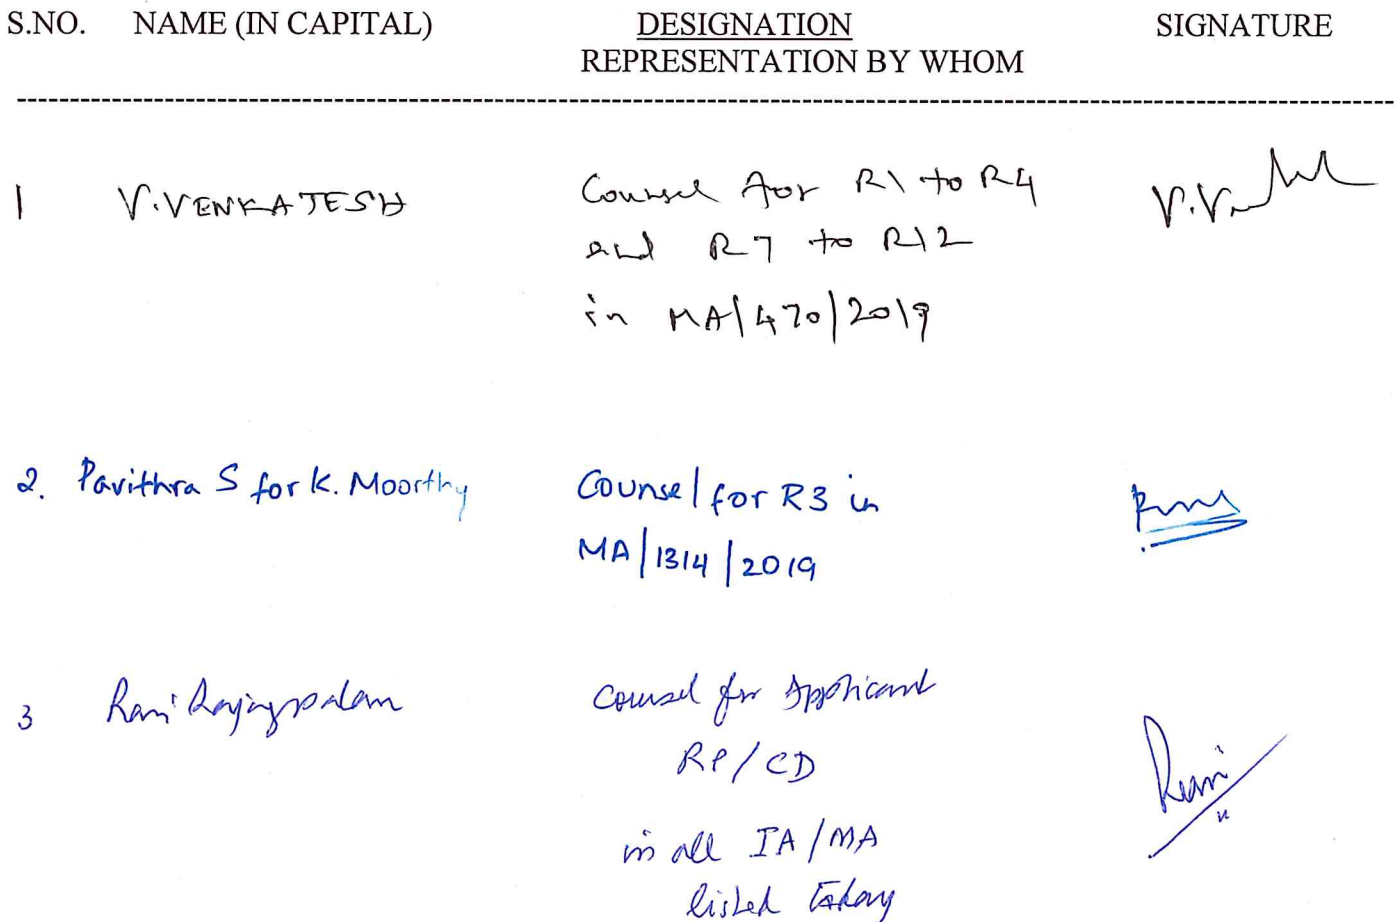 S.NO. NAME (IN CAPITAL) DESIGNATION SIGNATURE
REPRESENTATION BY WHOM
1 V.VENKATESH Counsel for R1 to R4
and R7 to R12
in MA/470/2019
2. Pavithra S for K. Moorthy Counsel for R3 in
MA/1314/2019
3 Rajagopalam counsel for Applicant
RP/CD
in all IA/MA
listed today